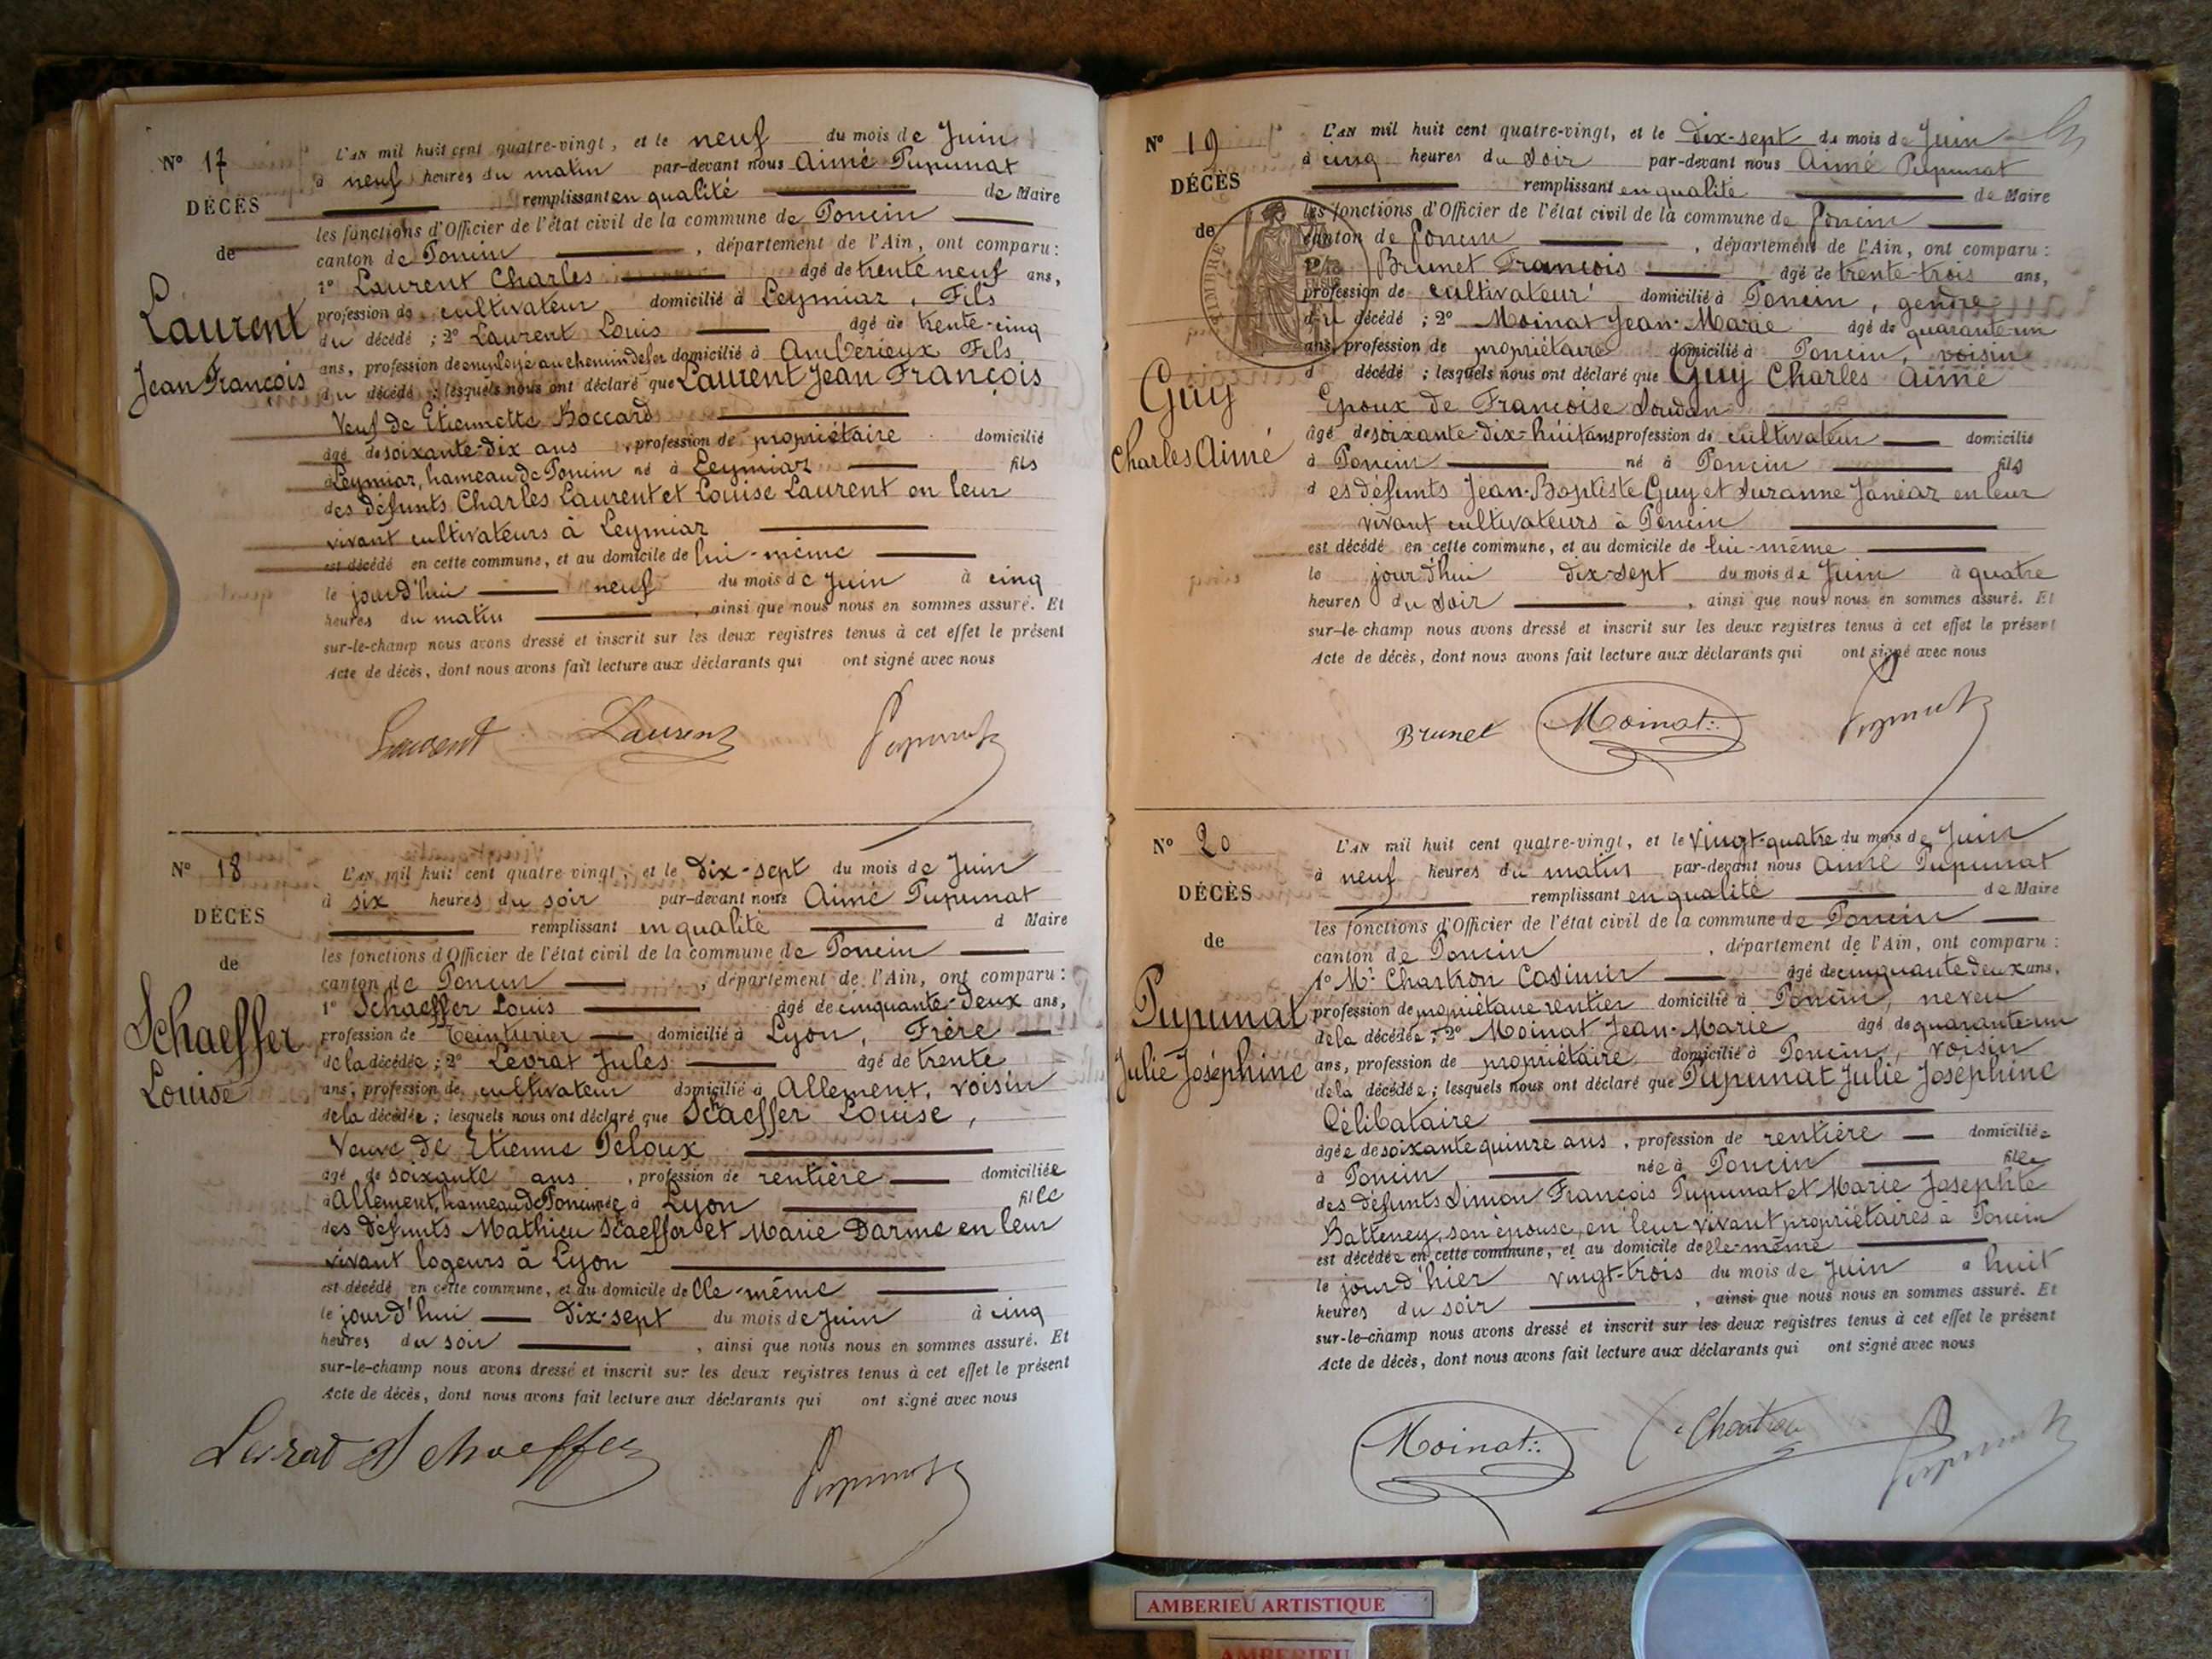 N° 17
DÉCÈS
de
Laurent
Jean François
L'AN mil huit cent quatre-vingt, et le neuf du mois de Juin
à neuf heures du matin par-devant nous Aimé Pupunat
remplissant en qualité de Maire
les fonctions d'Officier de l'état civil de la commune de Poncin
canton de Poncin, département de l'Ain, ont comparu :
1° Laurent Charles âgé de trente neuf ans,
profession de cultivateur domicilié à Leymiaz, Fils
du décédé ; 2° Laurent Louis âgé de trente-cinq
ans, profession de employé au chemin de fer domicilié à Ambérieux Fils
du décédé ; lesquels nous ont déclaré que Laurent Jean François
Veuf de Etiennette Boccard
âgé de soixante-dix ans, profession de propriétaire domicilié
à Leymiaz, hameau de Poncin né à Leymiaz fils
des défunts Charles Laurent et Louise Laurent en leur
vivant cultivateurs à Leymiaz
est décédé en cette commune, et au domicile de lui-même
le jourd'hui neuf du mois de Juin à cinq
heures du matin, ainsi que nous nous en sommes assuré. Et
sur-le-champ nous avons dressé et inscrit sur les deux registres tenus à cet effet le présent
Acte de décès, dont nous avons fait lecture aux déclarants qui ont signé avec nous
Laurent Laurent Pupunat
N° 18
DÉCÈS
de
Schaeffer
Louise
L'AN mil huit cent quatre-vingt, et le dix-sept du mois de Juin
à six heures du soir par-devant nous Aimé Pupunat
remplissant en qualité d Maire
les fonctions d'Officier de l'état civil de la commune de Poncin
canton de Poncin, département de l'Ain, ont comparu :
1° Schaeffer Louis âgé de cinquante-deux ans,
profession de Teinturier domicilié à Lyon, Frère
de la décédée ; 2° Levrat Jules âgé de trente
ans, profession de cultivateur domicilié à Allement, voisin
de la décédée ; lesquels nous ont déclaré que Schaeffer Louise,
Veuve de Etienne Peloux
âgé de soixante ans, profession de rentière domiciliée
à Allement, hameau de Poncin née à Lyon fille
des défunts Mathieu Scaeffer et Marie Darme en leur
vivant logeurs à Lyon
est décédé en cette commune, et au domicile de elle-même
le jourd'hui dix-sept du mois de Juin à cinq
heures du soir, ainsi que nous nous en sommes assuré. Et
sur-le-champ nous avons dressé et inscrit sur les deux registres tenus à cet effet le présent
Acte de décès, dont nous avons fait lecture aux déclarants qui ont signé avec nous
Levrat Schaeffer Pupunat
N° 19
DÉCÈS
de
TIMBRE
Guy
Charles Aimé
L'AN mil huit cent quatre-vingt, et le dix-sept du mois de Juin
à cinq heures du soir par-devant nous Aimé Pupunat
remplissant en qualité de Maire
les fonctions d'Officier de l'état civil de la commune de Poncin
canton de Poncin, département de l'Ain, ont comparu :
Brunet François âgé de trente-trois ans,
profession de cultivateur domicilié à Poncin, gendre
du décédé ; 2° Moinat Jean-Marie âgé de quarante-un
ans, profession de propriétaire domicilié à Poncin, voisin
d décédé ; lesquels nous ont déclaré que Guy Charles Aimé
Epoux de Françoise Soudan
âgé de soixante-dix-huit ans profession de cultivateur domicilié
à Poncin né à Poncin fils
des défunts Jean-Baptiste Guy et Suzanne Janéaz en leur
vivant cultivateurs à Poncin
est décédé en cette commune, et au domicile de lui-même
le jourd'hui dix-sept du mois de Juin à quatre
heures du soir, ainsi que nous nous en sommes assuré. Et
sur-le-champ nous avons dressé et inscrit sur les deux registres tenus à cet effet le présent
Acte de décès, dont nous avons fait lecture aux déclarants qui ont signé avec nous
Brunet Moinat Pupunat
N° 20
DÉCÈS
de
Pupunat
Julie Joséphine
L'AN mil huit cent quatre-vingt, et le vingt-quatre du mois de Juin
à neuf heures du matin par-devant nous Aimé Pupunat
remplissant en qualité de Maire
les fonctions d'Officier de l'état civil de la commune de Poncin
canton de Poncin, département de l'Ain, ont comparu :
1° Mr Chastron Casimir âgé de cinquante deux ans,
profession de propriétaire rentier domicilié à Poncin, neveu
de la décédée ; 2° Moinat Jean-Marie âgé de quarante-un
ans, profession de propriétaire domicilié à Poncin, voisin
de la décédée ; lesquels nous ont déclaré que Pupunat Julie Joséphine
Célibataire
âgée de soixante quinze ans, profession de rentière domiciliée
à Poncin née à Poncin fille
des défunts Simon François Pupunat et Marie Josephte
Batteney, son épouse, en leur vivant propriétaires à Poncin
est décédée en cette commune, et au domicile de elle-même
le jourd'hier vingt-trois du mois de Juin à huit
heures du soir, ainsi que nous nous en sommes assuré. Et
sur-le-champ nous avons dressé et inscrit sur les deux registres tenus à cet effet le présent
Acte de décès, dont nous avons fait lecture aux déclarants qui ont signé avec nous
Moinat Pupunat
AMBERIEU ARTISTIQUE
AMBERIEU